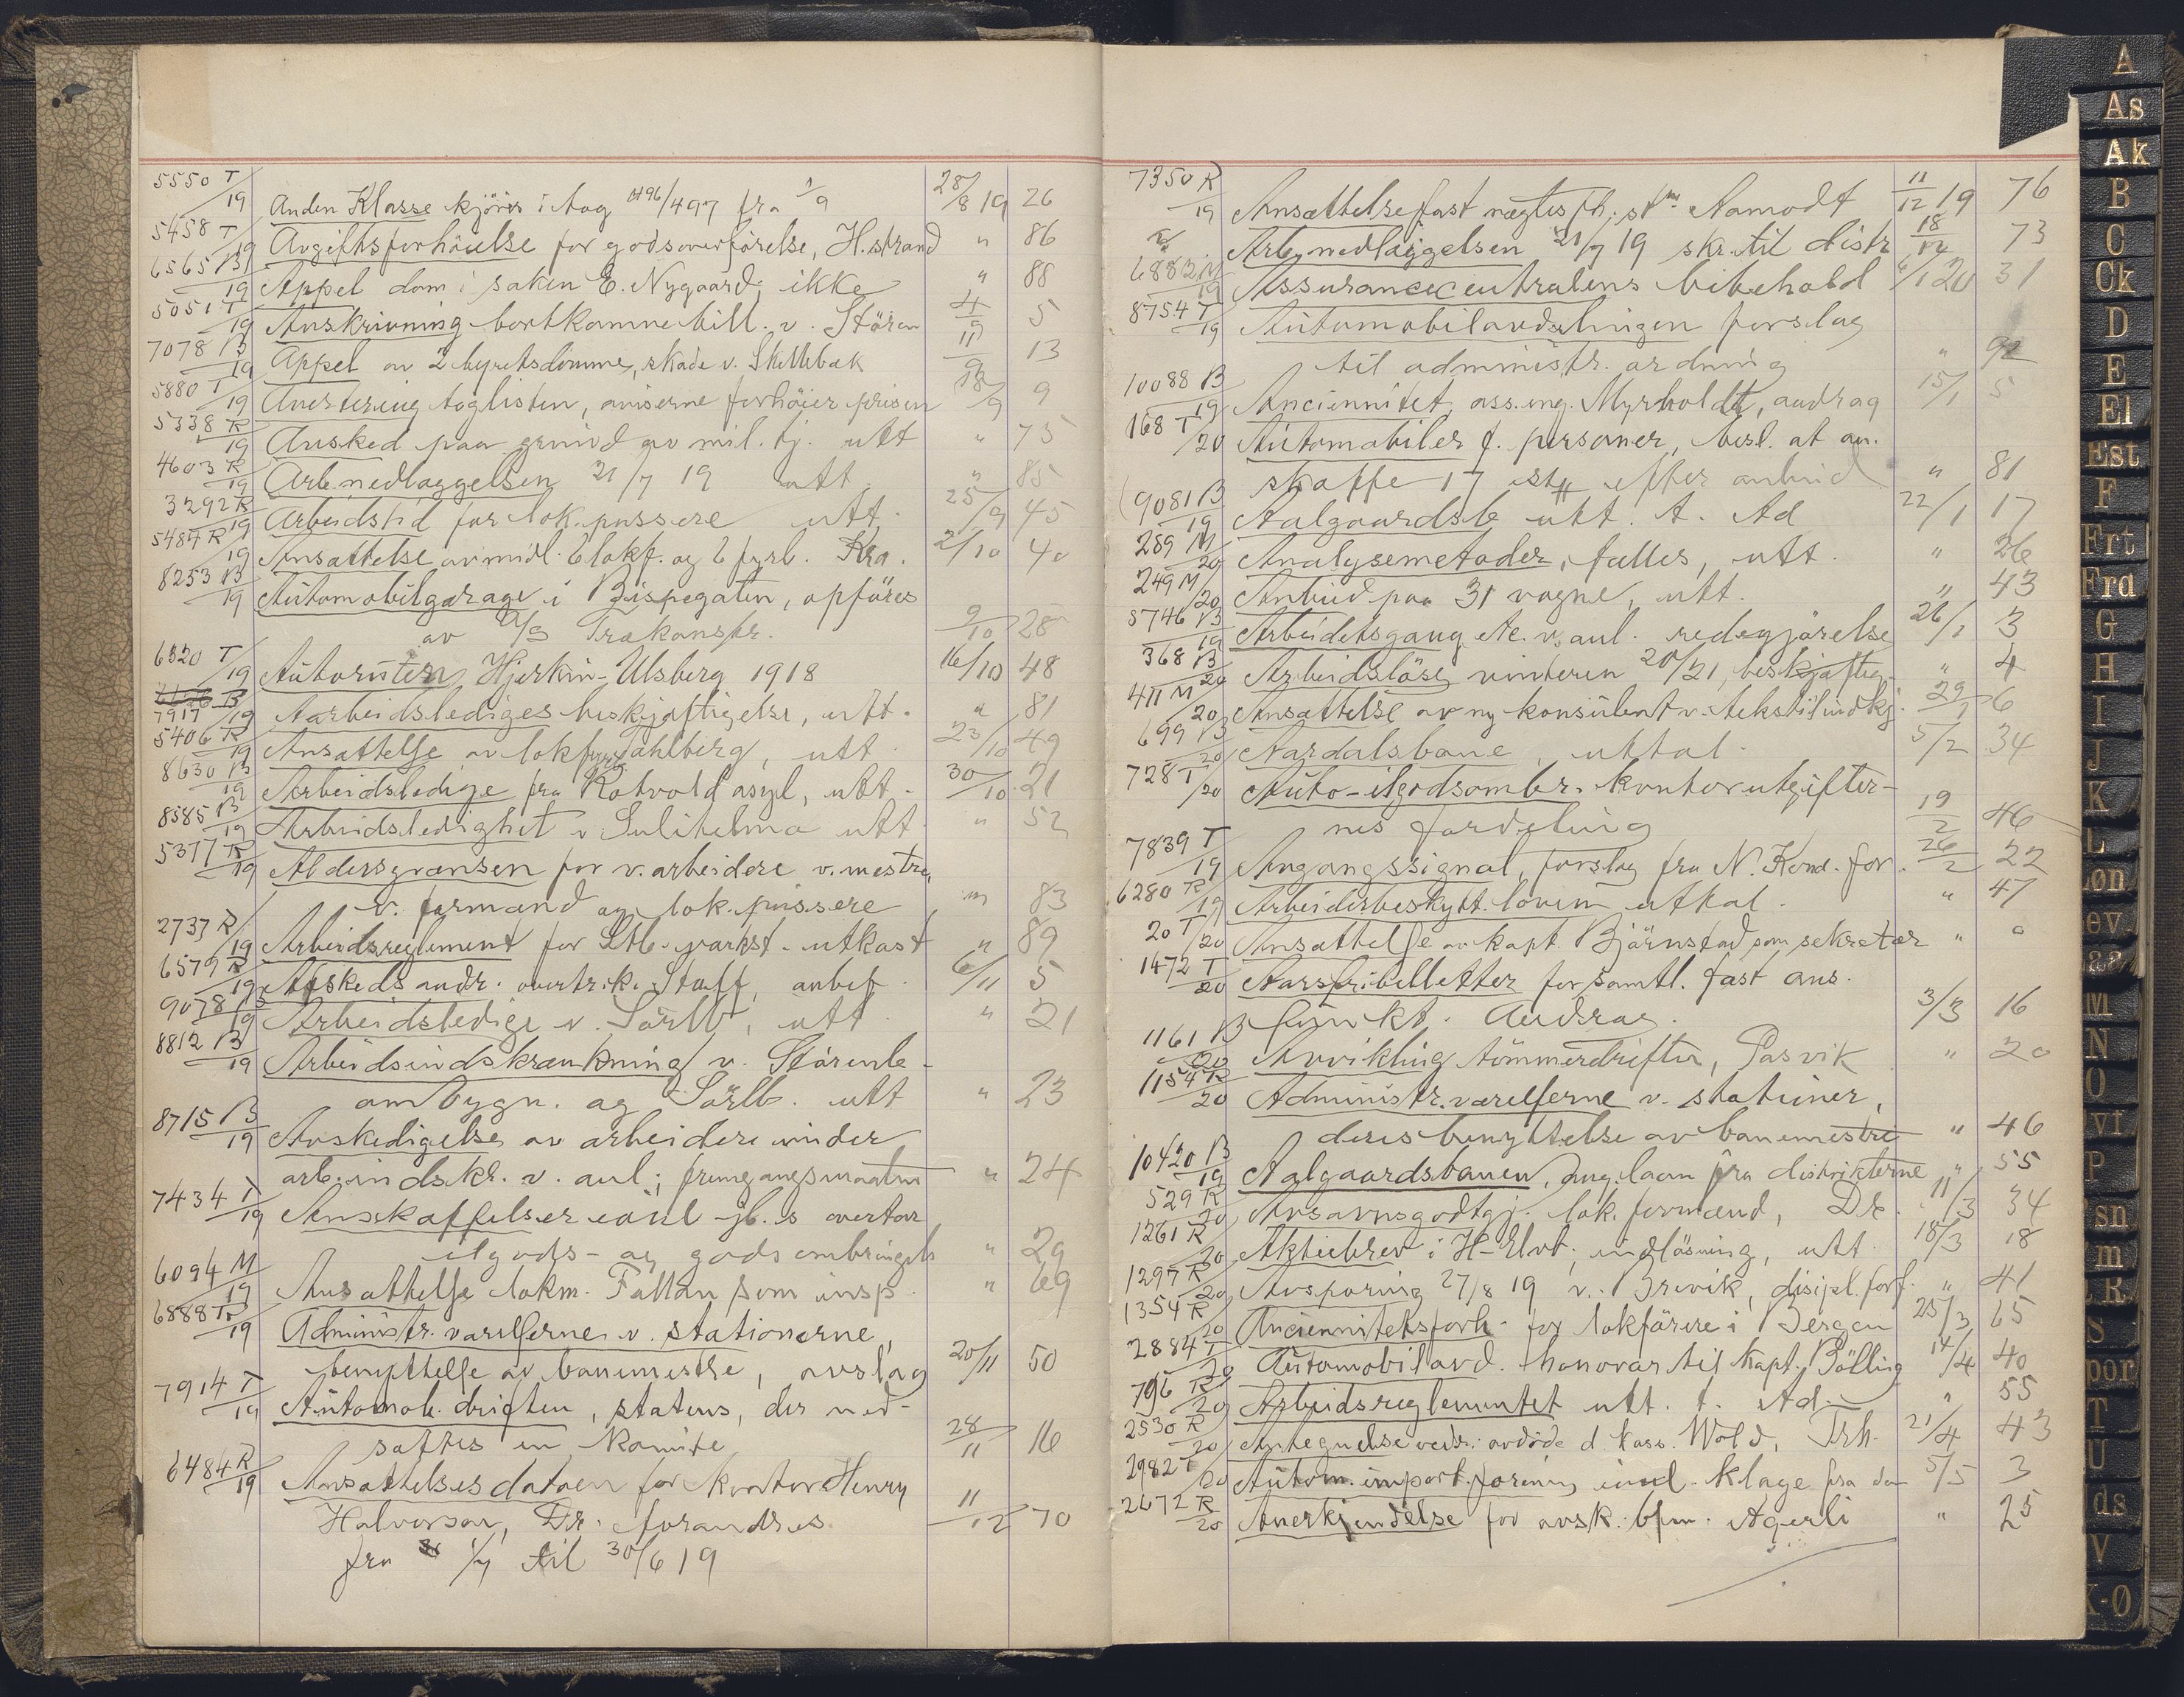 5550 T/19 Anden Klasse kjöres i tog 496/497 fra 1/9 28/8 19 26
5458 T/19 Avgiftsforhöielse for godsoverförelse, H.strand " 86
6565 B/19 Appel dom i saken E. Nygaard, ikke " 88
5051 T/19 Anskrivning bortkomne bill. v. Stören 4/9 5
7078 B/19 Appel av 2 byretsdomme, skade v. Skillebæk 11/9 13
5880 T/19 Avertering toglisten, aviserne forhöier prisen 18/9 9
5338 R/19 Avsked paa grund av mil. tj. utt " 75
4603 R/19 Arb.nedlæggelsen 21/7 19 utt " 85
3292 R/19 Arbeidstid for lok.pussere utt. 25/9 45
5484 R/19 Ansættelse av midl. 6 lokf. og 6 fyrb. Kra. 2/10 40
8253 B/19 Automobilgarage i Bispegaten, opföres
av A/S Trækonstr. 9/10 28
6320 T/19 Autoruten Hjerkin-Ulsberg 1918 16/10 48
7917 B/19 Aarbeidslediges beskjæftigelse, utt. " 81
5406 R/19 Ansættelse av lokfyrb. Dahlberg, utt. 23/10 49
8630 B/19 Arbeidsledige fra Rotvold asyl, utt. 30/10 21
8585 B/19 Arbeidsledighet v. Sulitelma utt. " 52
5377 R/19 Aldersgrænsen for v.arbeidere v.mestre,
v. formænd og lok.pussere " 83
2737 R/19 Arbeidsreglement for Stb. verkst. utkast " 89
6579 R/19 Avskeds andr. overtrk. Staff, anbef. 6/11 5
9078 B/19 Arbeidsledige v. Sörlb, utt. " 21
8812 B/19 Arbeidsindskrænkning v. Störenb-
ombygn. og Sörlb. utt " 23
8715 B/19 Avskedigelse av arbeidere under
arb.indskr. v. anl; fremgangsmaaten " 24
7434 T/19 Anskaffelser
ilgods- og godsombringels " 29
6094 M/19 Ansættelse lokm. Fallan som insp. " 69
6888 R/19 Administr. værelserne v. stationerne,
benyttelse av banemestre, avslag 20/11 50
7914 T/19 Automob. driften, statens, der ned-
sættes en komite 28/11 16
6484 R/19 Ansættelsesdatoen for kontor Henry
Halvorsen, Dr. forandres 11/12 70
fra 1/7 til 30/6 19
7350 R/19 Ansættelse fast nægtes fh. stm Aamodt 11/12 19 76
Arb.nedlæggelsen 21/7 19 skr. til distr 18/12 73
6883 M/19 Assurancecentralens bibehold 8/1 20 31
8754 T/19 Automobilavdelingen forslag
til administr. ordning " 92
10088 B/19 Anciennitet ass.ing. Myrholdt, andrag 15/1 5
168 T/20 Automobiler f. personer, besl. at an.
skaffe 17 stk efter anbud " 81
9081 B/19 Aalgaardsb utt. t. Ad 22/1 17
289 M/20 Analysemetoder, fælles, utt. " 26
249 M/20 Anbud paa 31 vogne, utt. " 43
5746 B/19 Arbeidetsgang etc. v. anl. redegjörelse 26/1 3
368 B/20 Arbeidslöse vinteren 20/21, beskjæftig. " 4
411 M/20 Ansættelse av ny konsulent v. tekstilindkj. 29/1 6
699 B/20 Aardalsbane, uttal. 5/2 34
728 T/20 Auto-ilgodsombr. kontorutgifter-
nes fordeling 19/2 46
7839 T/19 Avgangssignal, forslag fra N. Kond. for. 26/2 22
6280 R/19 Arbeiderbeskytt.loven uttal. " 47
20 T/20 Ansættelse av kapt. Björnstad som sekretær "
1472 T/20 Aarsfribilletter for samtl. fast ans.
funkt. Andrag. 3/3 16
1161 B/20 Avvikling tömmerdriften, Pasvik " 20
1154 R/20 Administr. værelserne v. stationer,
deres benyttelse av banemestre " 46
10420 B/19 Aalgaardsbanen, ang. laan fra distrikterne " 55
529 R/20 Avsavnsgodtgj. lok. formænd, Dr. 11/3 34
1261 R/20 Aktiebrev i H-Elvb, indlösning, utt. 18/3 18
1297 R/20 Avsporing 27/8 19 v. Brevik, disipl. forf. " 41
1354 R/20 Anciennitetsforh. for lokförere i Bergen 25/3 65
2884 T/20 Automobilavd. honorar til kapt. Bölling 14/4 40
796 R/20 Arbeidsreglementet utt. t. Ad. " 55
2530 R/20 Antegnelse vedr. avdöde d kass. Wold, Trh. 21/4 43
2982 T/20 Autom. import. forening klage fra den 5/5 3
2672 R/20 Anerkjendelse for avsk. bfm. Agerli " 25
A
As
Ak
B
C
Ck
D
E
El
Est
F
Frt
Frd
G
H
I
J
K
L
Løn
M
N
O
P
R
S
T
U
V